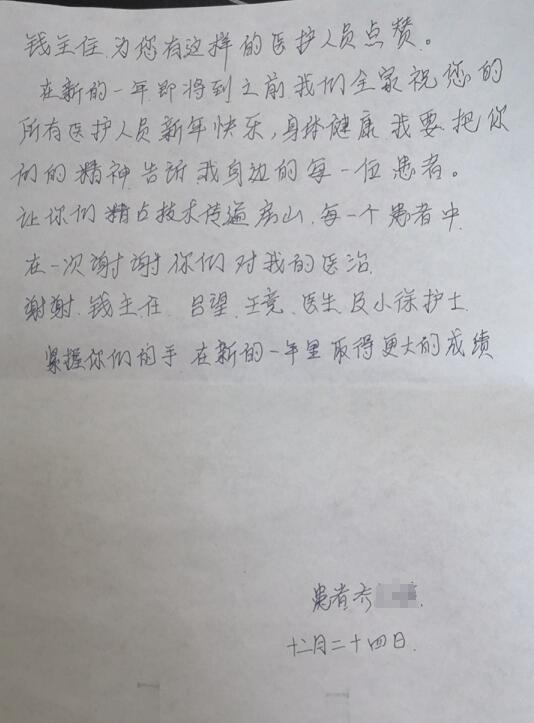 钱主任,为您有这样的医护人员点赞。
在新的一年即将到之前,我们全家祝您的
所有医护人员新年快乐,身体健康,我要把你
们的精神告诉我身边的每一位患者。
让你们精占技术传遍房山,每一个患者中.
在一次谢谢你们对我的医治.
谢谢.钱主任 吕望.王竞.医生及小徐护士.
紧握你们的手在新的一年里取得更大的成绩
患者
十二月二十四日.